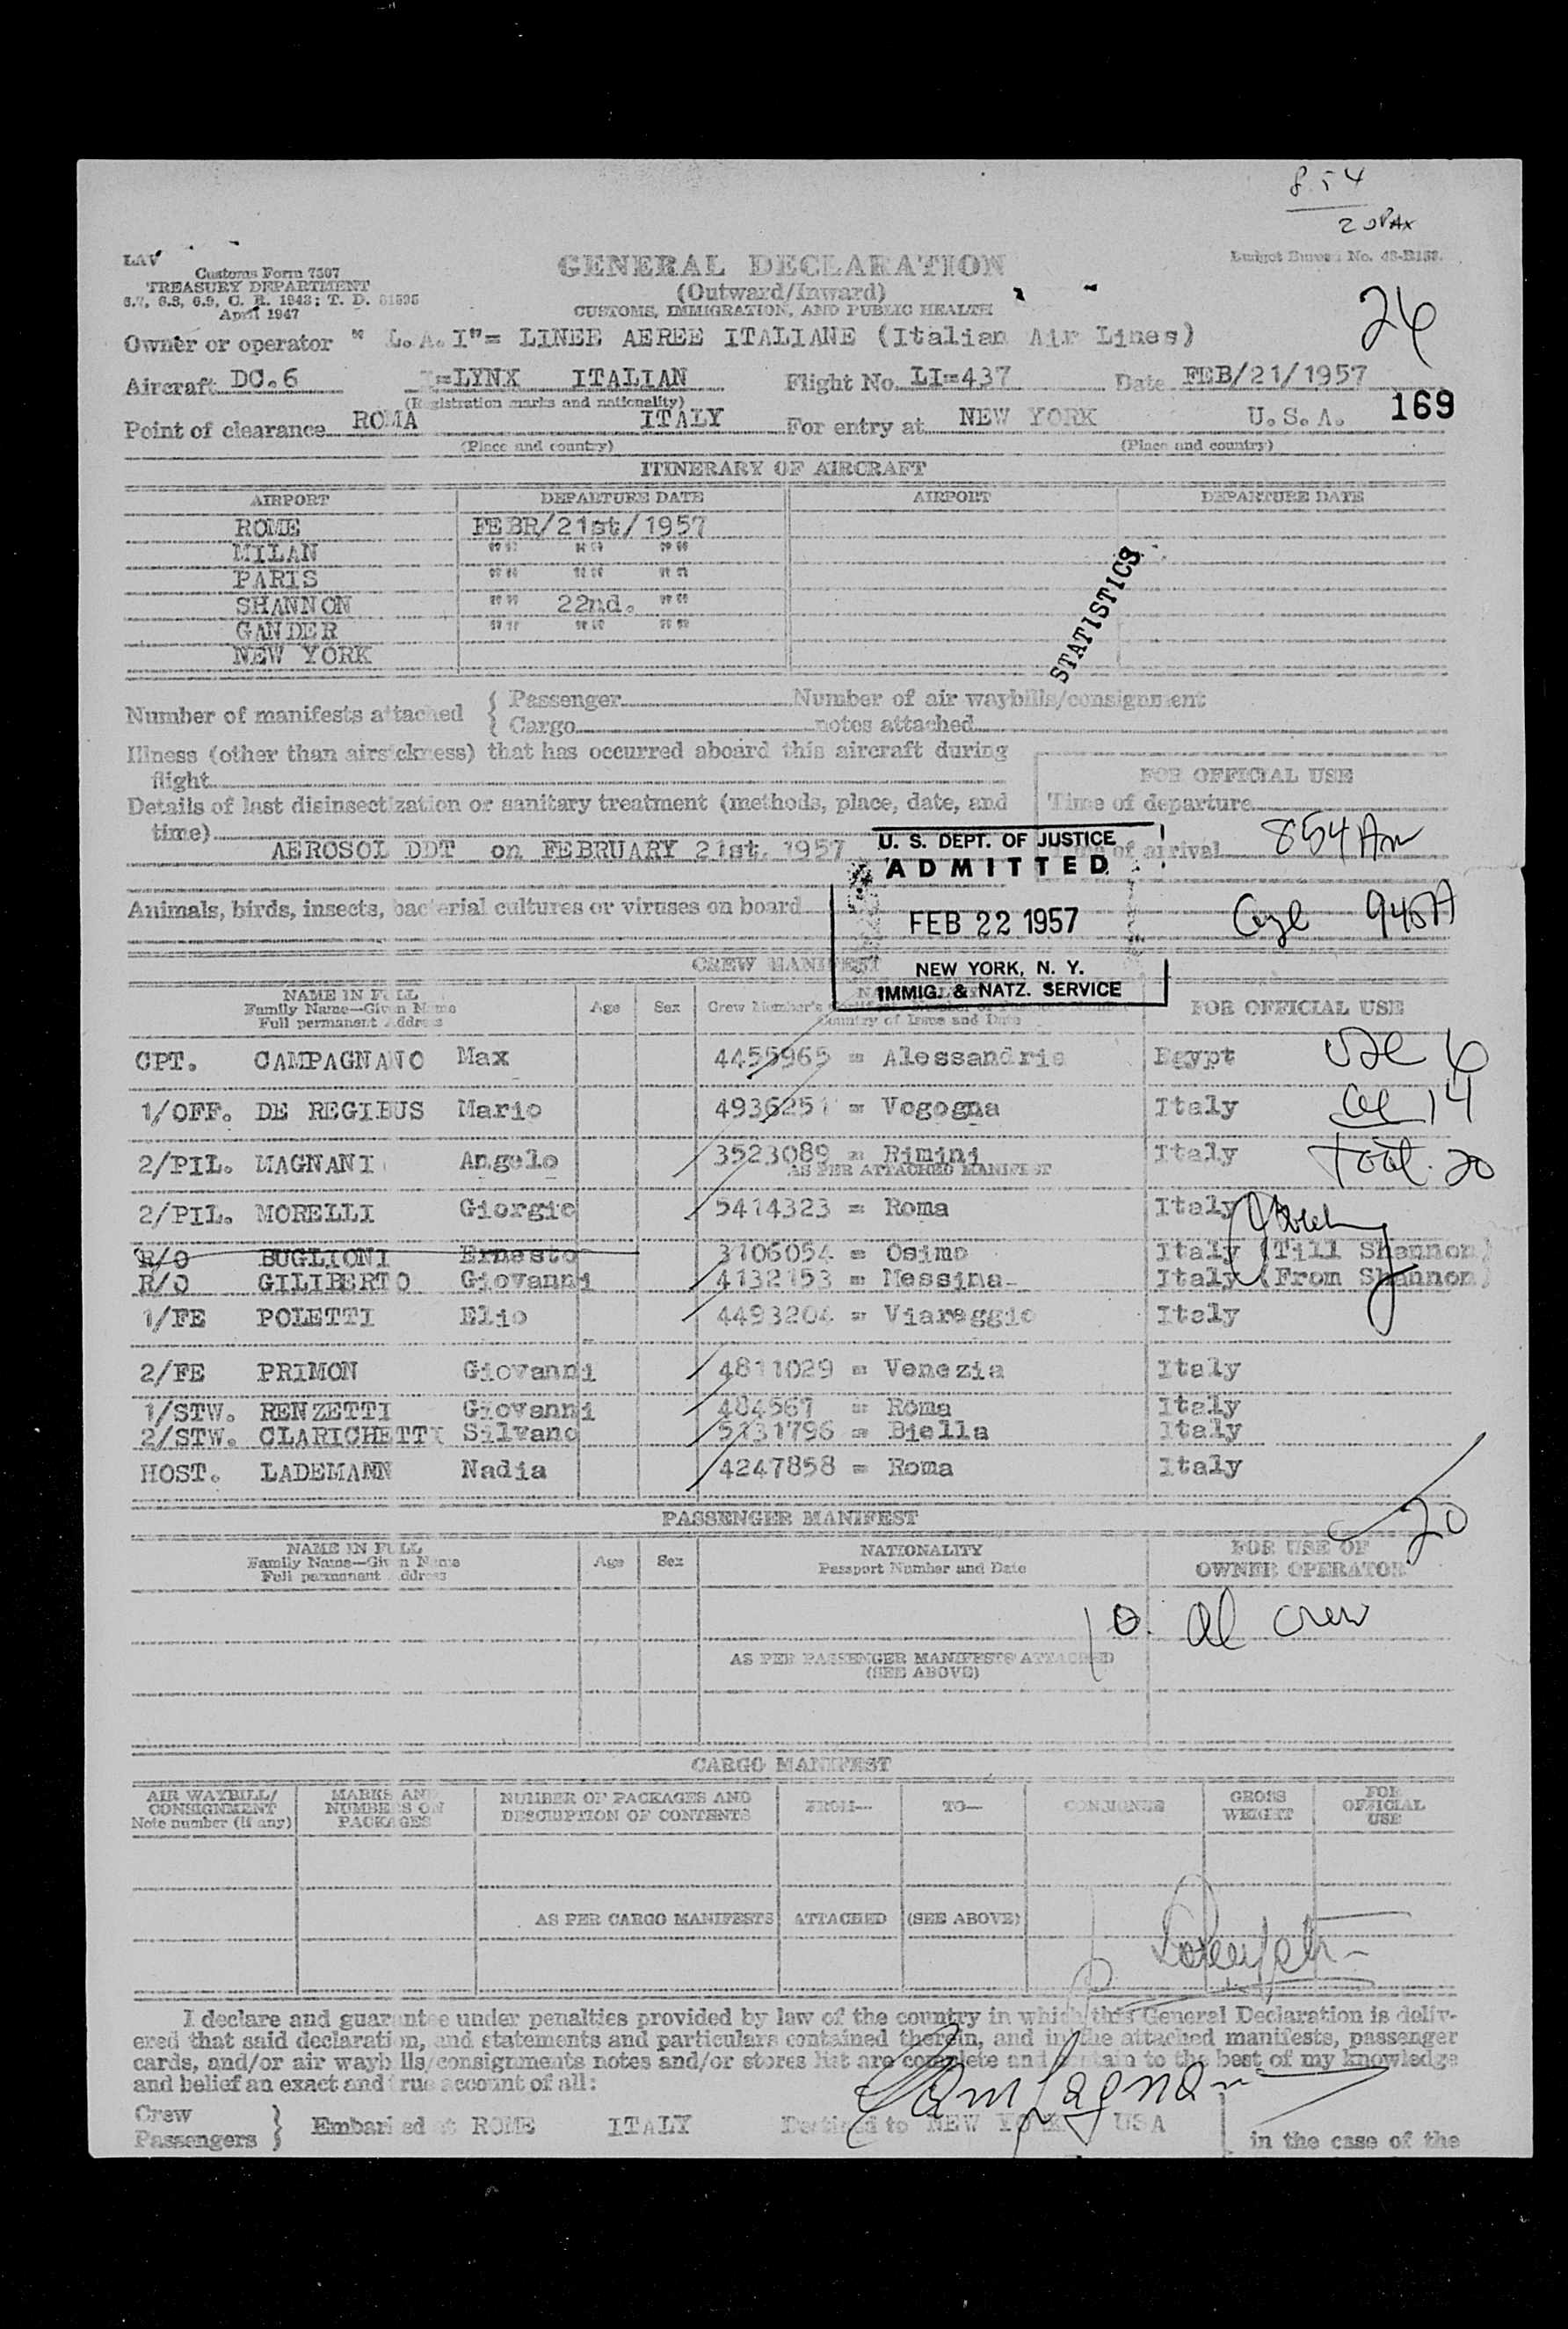 8 54
20 PAX
LAV
Customs Form 7507
TREASURY DEPARTMENT
6.7, 6.8, 6.9, C. R. 1943; T. D. 51535
April 1947
GENERAL DECLARATION
(Outward/Inward)
CUSTOMS, IMMIGRATION, AND PUBLIC HEALTH
Budget Bureau No. 48-R153.
26
Owner or operator " L.A.I"= LINEE AEREE ITALIANE (Italian Air Lines)
Aircraft DC.6 =LYNX ITALIAN Flight No. LI=437 Date FEB/21/1957
(Registration marks and nationality)
169
Point of clearance ROMA ITALY For entry at NEW YORK U.S.A.
(Place and country) (Place and country)
ITINERARY OF AIRCRAFT
AIRPORT DEPARTURE DATE AIRPORT DEPARTURE DATE
ROME FEBR/21st/1957
MILAN "" "" ""
PARIS "" "" ""
SHANNON "" 22nd. ""
GANDER "" "" ""
NEW YORK
STATISTICS
Number of manifests attached { Passenger Number of air waybills/consignment
Cargo notes attached
Illness (other than airsickness) that has occurred aboard this aircraft during
flight
FOR OFFICIAL USE
Details of last disinsectization or sanitary treatment (methods, place, date, and
time)
Time of departure
AEROSOL DDT on FEBRUARY 21st. 1957
Time of arrival 854 Am
U. S. DEPT. OF JUSTICE
ADMITTED
FEB 22 1957
NEW YORK, N. Y.
IMMIG. & NATZ. SERVICE
Animals, birds, insects, bacterial cultures or viruses on board
945A
CREW MANIFEST
NAME IN FULL
Family Name—Given Name
Full permanent Address
Age Sex
Crew Member's Certificate Number or Passport Number
Country of Issue and Date
FOR OFFICIAL USE
CPT. CAMPAGNANO Max 4455965 = Alessandria Egypt
1/OFF. DE REGIBUS Mario 4936251 = Vogogna Italy
14
2/PIL. MAGNANI Angelo 3523089 = Rimini Italy
AS PER ATTACHED MANIFEST
Total. 20
2/PIL. MORELLI Giorgio 5414323 = Roma Italy
R/O BUGLIONI Ernesto 3106054 = Osimo Italy (Till Shannon)
R/O GILIBERTO Giovanni 4132153 = Messina Italy (From Shannon)
1/FE POLETTI Elio 4493204 = Viareggio Italy
2/FE PRIMON Giovanni 4811029 = Venezia Italy
1/STW. RENZETTI Giovanni 484567 = Roma Italy
2/STW. CLARICHETTI Silvano 5131796 = Biella Italy
HOST. LADEMANN Nadia 4247858 = Roma Italy
20
PASSENGER MANIFEST
NAME IN FULL
Family Name—Given Name
Full permanent Address
Age Sex
NATIONALITY
Passport Number and Date
FOR USE OF
OWNER OPERATOR
10. al crew
AS PER PASSENGER MANIFESTS ATTACHED
(SEE ABOVE)
CARGO MANIFEST
AIR WAYBILL/
CONSIGNMENT
Note number (if any)
MARKS AND
NUMBERS ON
PACKAGES
NUMBER OF PACKAGES AND
DESCRIPTION OF CONTENTS
FROM— TO— CONSIGNEE
GROSS
WEIGHT
FOR
OFFICIAL
USE
AS PER CARGO MANIFESTS ATTACHED (SEE ABOVE)
I declare and guarantee under penalties provided by law of the country in which this General Declaration is deliv-
ered that said declaration, and statements and particulars contained therein, and in the attached manifests, passenger
cards, and/or air waybills/consignments notes and/or stores list are complete and contain to the best of my knowledge
and belief an exact and true account of all:
Crew
Passengers } Embarked at ROME ITALY Destined to NEW YORK USA
in the case of the